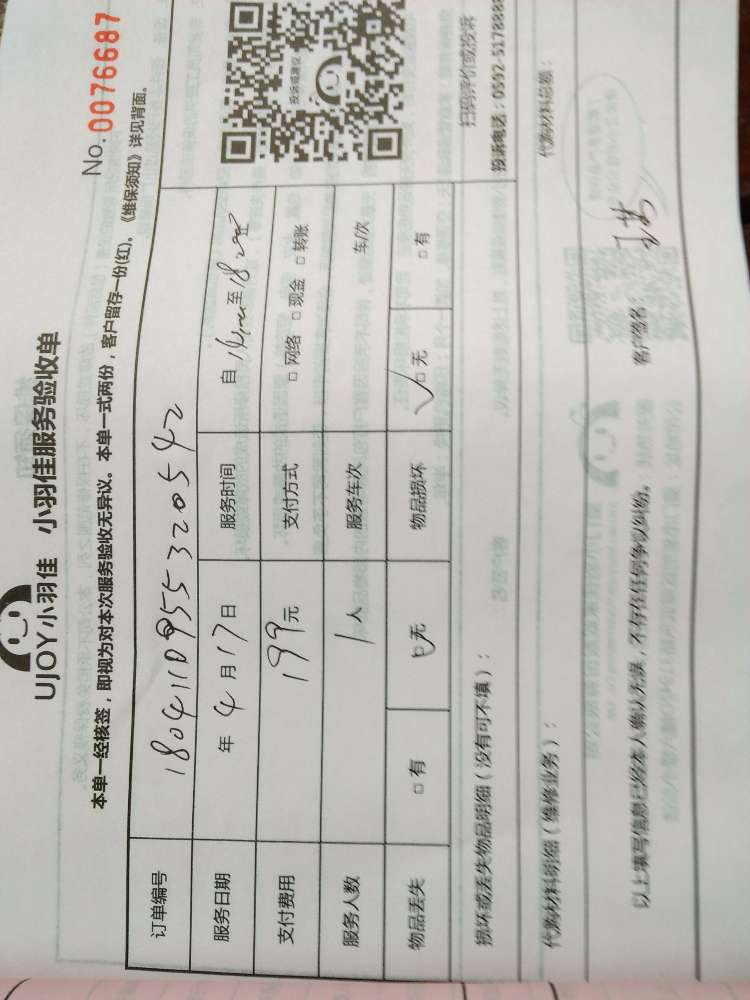 UJOY小羽佳 小羽佳服务验收单
No. 0076687
本单一经核签，即视为对本次服务验收无异议。本单一式两份，客户留存一份(红)。《维保须知》详见背面。
订单编号 1804110955320542
服务日期 年 4 月 17 日 服务时间 自 至 18
支付费用 199 元 支付方式 □ 网络 □ 现金 □ 转账
服务人数 1 人 服务车次 车/次
物品丢失 □ 有 □ 无 物品损坏 □ 无 □ 有
投诉或建议
扫码评价或投诉
投诉电话：0592-5178888
损坏或丢失物品明细（没有可不填）：
代购材料明细（维修业务）： 代购材料总额：
以上填写信息已经本人确认无误，不存在任何争议纠纷。 客户签名：